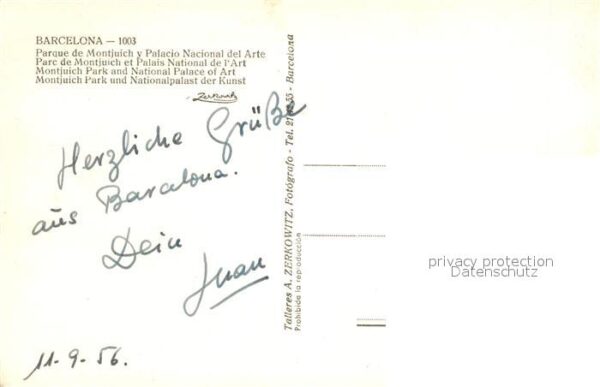 BARCELONA — 1003
Parque de Montjuich y Palacio Nacional del Arte
Parc de Montjuich et Palais National de l'Art
Montjuich Park and National Palace of Art
Montjuich Park und Nationalpalast der Kunst
Zerkowitz
Herzliche Grüße
aus Barcelona.
Dein
Juan
11-9-56.
Talleres A. ZERKOWITZ, Fotógrafo - Tel. - Barcelona
Prohibida la reproducción
privacy protection
Datenschutz